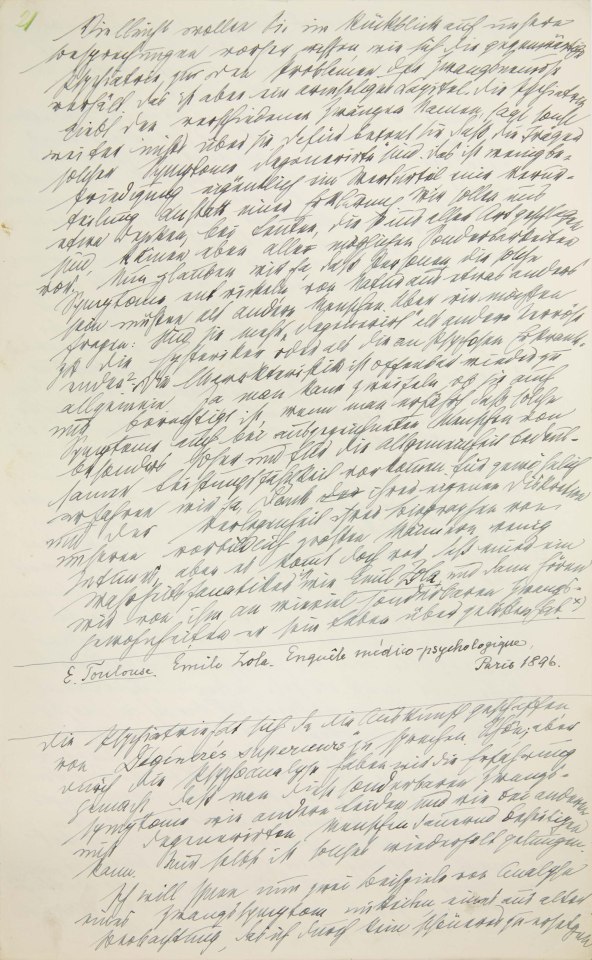 21
Vielleicht wollen Sie im Rückblick auf unsere
Besprechungen vorher wissen, wie sich die gegenwärtige
Psychiatrie zu den Problemen der Zwangsneurose
verhält. Das ist aber ein armseliges Capitel. Die Psychiatrie
giebt den verschiedenen Zwängen Namen, sagt sonst
weiter nichts über sie. Dafür betont sie, daß die Träger
solcher Symptome „Degenerirte“ sind. Das ist wenig Be-
friedigung, eigentlich ein Werturteil, eine Verur-
teilung anstatt einer Erklärung. Wir sollen uns
etwa denken, bei Leuten, die aus der Art geschlagen
sind, kämen eben alle möglichen Sonderbarkeiten
vor. Nun glauben wir ja, daß Personen, die solche
Symptome entwickeln, von Natur aus etwas anders
sein müssen als andere Menschen. Aber wir möchten
fragen: Sind sie mehr „degenerirt“ als andere Nervöse,
die Hysteriker oder als die an Psychosen Erkrank-
enden? Die Charakteristik ist offenbar wieder zu
allgemein. Ja man kann zweifeln, ob sie auch
nur berechtigt ist, wenn man erfährt, daß solche
Symptome auch bei ausgezeichneten Menschen von
besonders hoher und für die Allgemeinheit bedeut-
samer Leistungsfähigkeit vorkommen. Für gewöhnlich
erfahren wir ja, Dank ihrer eigenen Diskretion
und der Verlogenheit ihrer Biographen von
unseren vorbildlich großen Männern wenig
Intimes, aber es kommt doch vor, daß einer ein
Wahrheitsfanatiker wie Emil Zola, und dann hören
wir von ihm, an wieviel sonderbaren Zwangs-
gewohnheiten er sein Leben über gelitten hat. x)
E. Toulouse. Émile Zola. Enquête médico-psychologique,
Paris 1896.
Die Psychiatrie hat sich da die Auskunft geschaffen
von „Dégénérés supérieurs“ zu sprechen. Schön; aber
durch die Psychoanalyse haben wir die Erfahrung
gemacht, daß man diese sonderbaren Zwangs-
symptome wie andere Leiden und wie bei anderen
nicht degenerirten Menschen dauernd beseitigen
kann. Mir selbst ist solches wiederholt gelungen.
Ich will Ihnen nun zwei Beispiele von Analyse
eines Zwangssymptoms mitteilen, eines aus alter
Beobachtung, das ich durch kein schöneres zu ersetzen